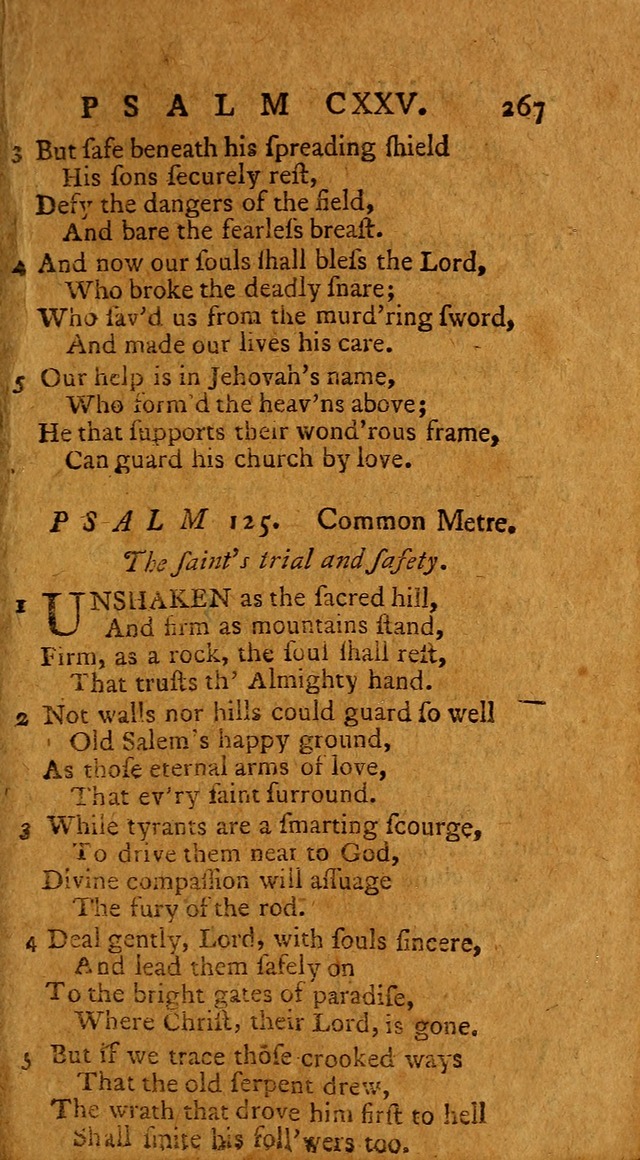 PSALM CXXV. 267
3 But ſafe beneath his ſpreading ſhield
His ſons ſecurely reſt,
Defy the dangers of the field,
And bare the fearleſs breaſt.
4 And now our ſouls ſhall bleſs the Lord,
Who broke the deadly ſnare;
Who ſav'd us from the murd'ring ſword,
And made our lives his care.
5 Our help is in Jehovah's name,
Who form'd the heav'ns above;
He that ſupports their wond'rous frame,
Can guard his church by love.
PSALM 125. Common Metre.
The ſaint's trial and ſafety.
1 UNSHAKEN as the ſacred hill,
And firm as mountains ſtand,
Firm, as a rock, the ſoul ſhall reſt,
That truſts th' Almighty hand.
2 Not walls nor hills could guard ſo well
Old Salem's happy ground,
As thoſe eternal arms of love,
That ev'ry ſaint ſurround.
3 While tyrants are a ſmarting ſcourge,
To drive them near to God,
Divine compaſſion will aſſuage
The fury of the rod.
4 Deal gently, Lord, with ſouls ſincere,
And lead them ſafely on
To the bright gates of paradiſe,
Where Chriſt, their Lord, is gone.
5 But if we trace thoſe crooked ways
That the old ſerpent drew,
The wrath that drove him firſt to hell
Shall ſmite his foll'wers too.